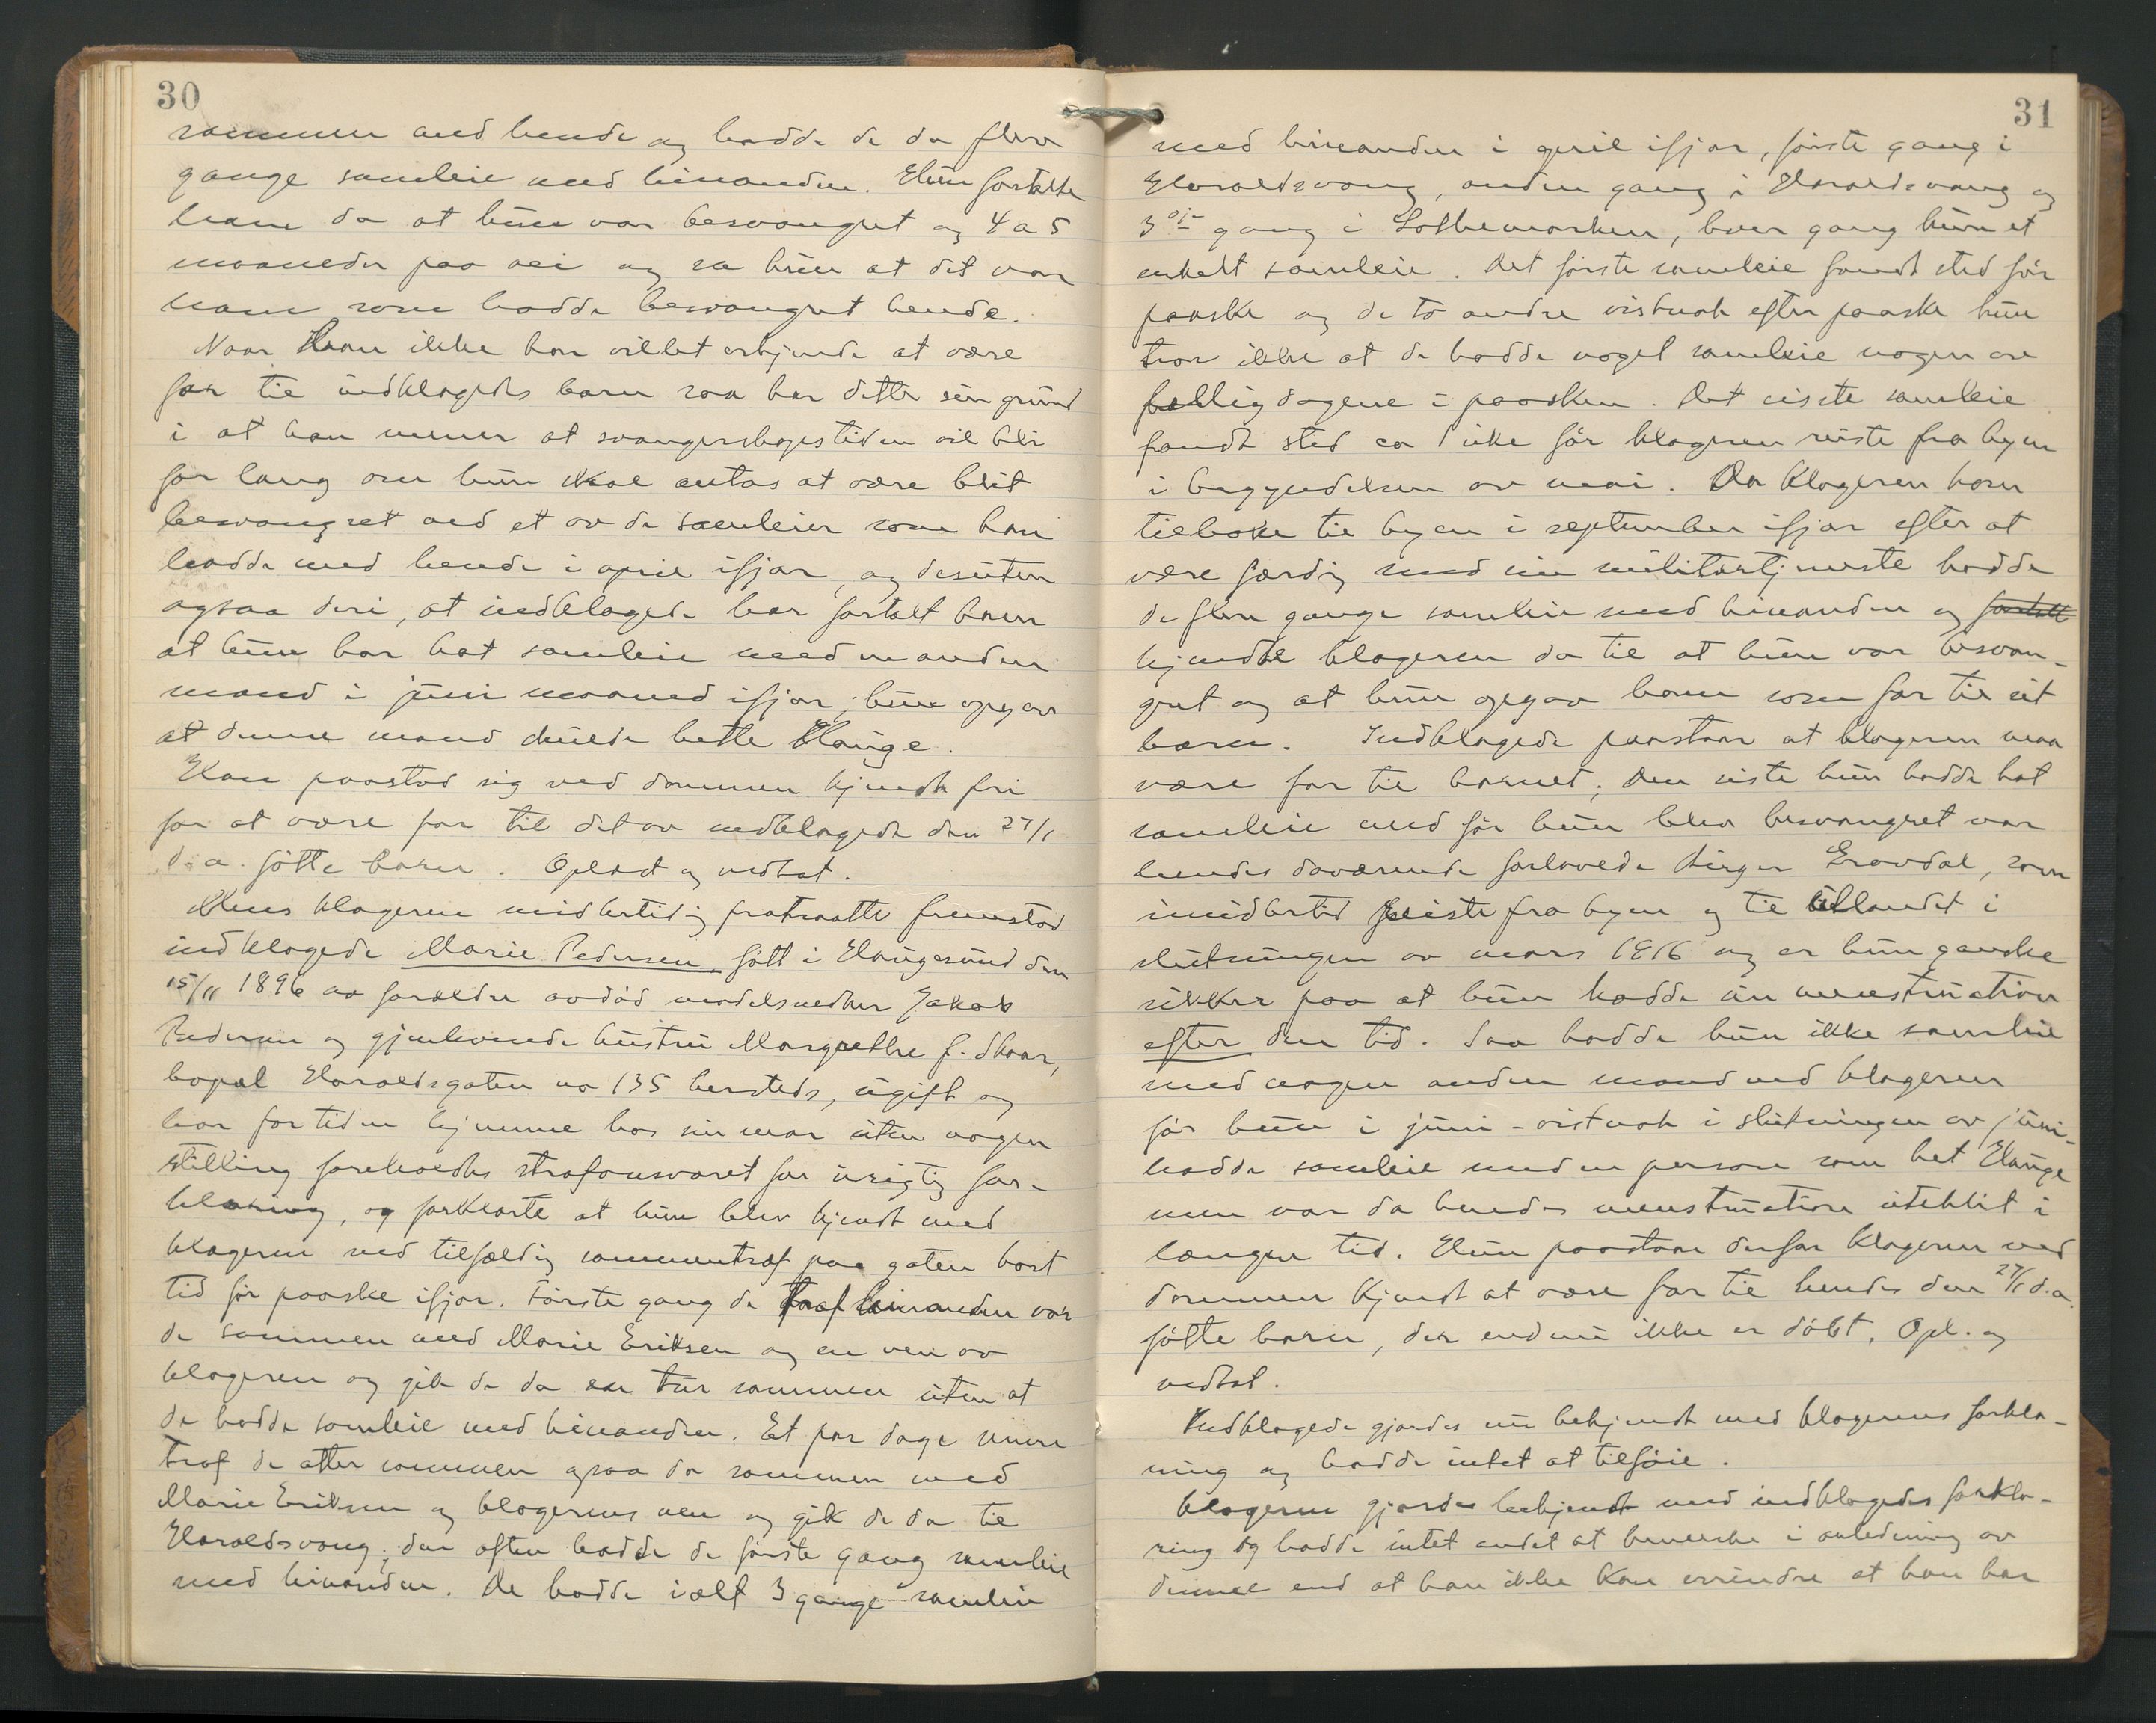 30
sammen med hende og hadde de da flere
gange samleie med hinanden. Hun fortalte
ham da at hun var besvangret og 4 a 5
maaneder paa vei og sa hun at det var
ham som hadde besvangret hende.
Naar han ikke har villet erkjende at være
far til indklagedes barn saa har dette sin grund
i at han mener at svangerskapstiden vil bli
for lang om hun skal antas at være blit
besvangret ved et av de samleier som han
hadde med hende i april ifjor, og desuten
ogsaa deri, at indklagede har fortalt ham
at hun har hat samleie med en anden
mand i juni maaned ifjor; hun opgav
at denne mand skulde hette Hauge.
Han paastod sig ved dommen kjendt fri
for at være far til det av indklagede den 27/1
d.a. fötte barn. Oplæst og vedtat.
Mens klageren midlertidig fratraatte fremstod
indklagede Marie Pedersen fött i Haugesund den
15/11 1896 av forældre avdöd modelsnedker Jakob
Pedersen og gjenlevende hustru Margrethe f. Skaar,
bopæl Haraldsgaten no 135 hersteds, ugift og
bor for tiden hjemme hos sin mor uten nogen
stilling foreholdtes strafansvaret for urigtig for-
klaring, og forklarte at hun blev kjendt med
klageren ved tilfældig sammentræf paa gaten kort
tid för paaske ifjor. Förste gang de traf hinanden var
de sammen med Marie Eriksen og en ven av
klageren og gik de da en tur sammen uten at
de hadde samleie med hinanden. Et par dage senere
traf de atter sammen ogsaa da sammen med
Marie Eriksen og klagerens ven og gik de da til
Haraldsvang; den aften hadde de förste gang samleie
med hinanden. De hadde ialt 3 gange samleie
31
med hinanden i april ifjor, förste gang i
Haraldsvang, anden gang i Haraldsvang og
3die gang i Sothemarken, hver gang kun et
enkelt samleie. Det förste samleie fandt sted för
paaske og de to andre vistnok efter paaske hun
tror ikke at de hadde noget samleie nogen av
helligdagene i paasken. Det siste samleie
fandt sted ca 1 uke för klageren reiste fra byen
i begyndelsen av mai. Da klageren kom
tilbake til byen i september ifjor efter at
være færdig med sin militærtjeneste hadde
de flere gange samleie med hinanden og fortalt
kjendte klageren da til at hun var besvan-
gret og at hun opgav ham som far til sit
barn. Indklagede paastaar at klageren maa
være far til barnet; den siste hun hadde hat
samleie med för hun blev besvangret var
hendes daværende forlovede Birger Eravdal, som
imidlertid reiste fra byen og til utlandet i
slutningen av mars 1916 og er hun ganske
sikker paa at hun hadde sin menstruation
efter den tid. Saa hadde hun ikke samleie
med nogen anden mand end klageren
för hun i juni - vistnok i slutningen av juni -
hadde samleie med en person som het Hauge
men var da hendes menstruation uteblit i
længere tid. Hun paastaar derfor klageren ved
dommen kjendt at være far til hendes den 27/1 d.a.
fötte barn, der endnu ikke er döbt. Opl. og
vedtat.
Indklagede gjordes nu bekjendt med klagerens forkla-
ring og hadde intet at tilföie.
Klageren gjordes bekjendt med indklagedes forkla-
ring og hadde intet andet at bemerke i anledning av
denne end at han ikke kan erindre at han har